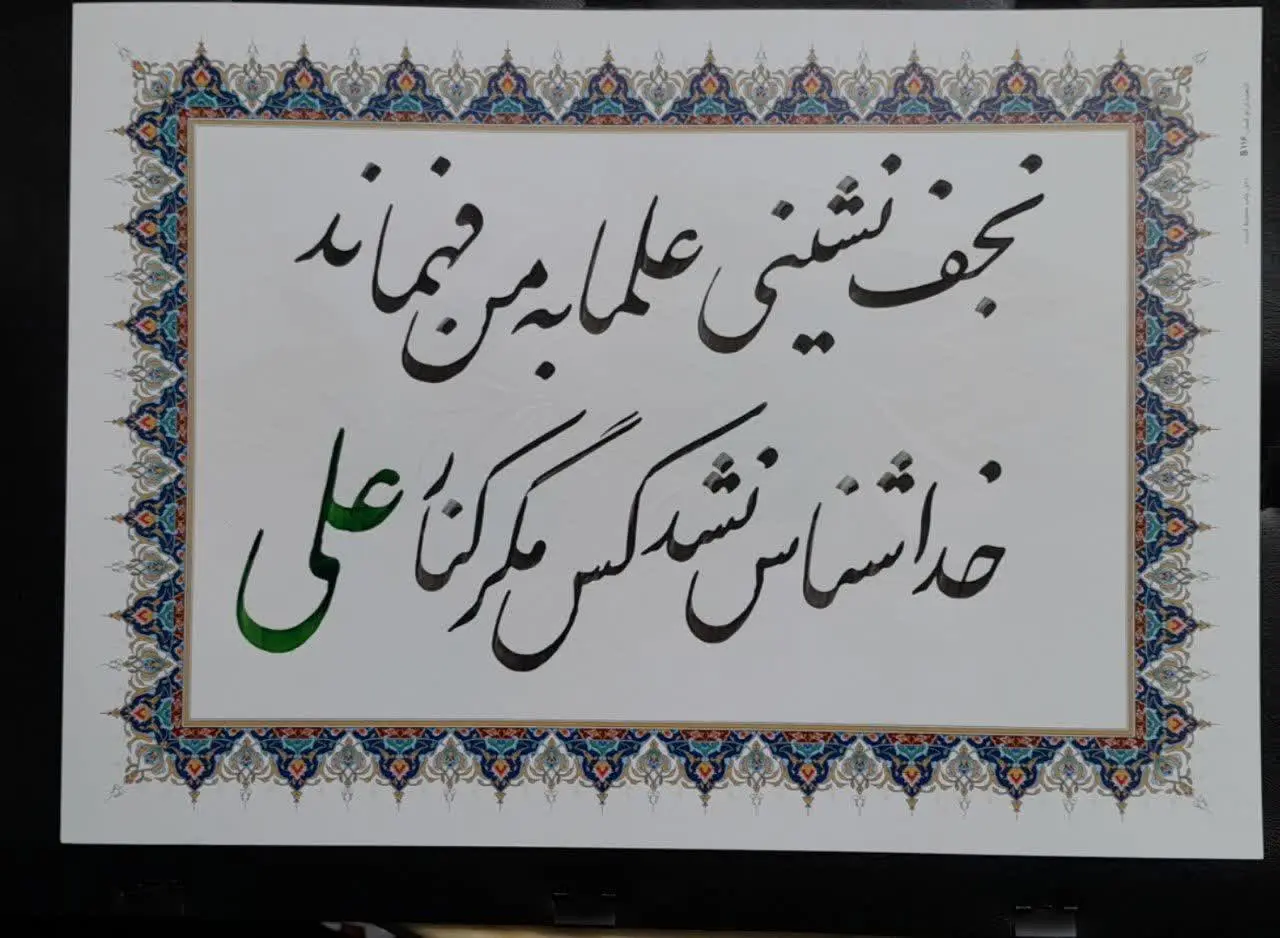 نجف نشینی علما به من فهماند
خداشناس نشد کس مگر کنار علی
B۱۱۶